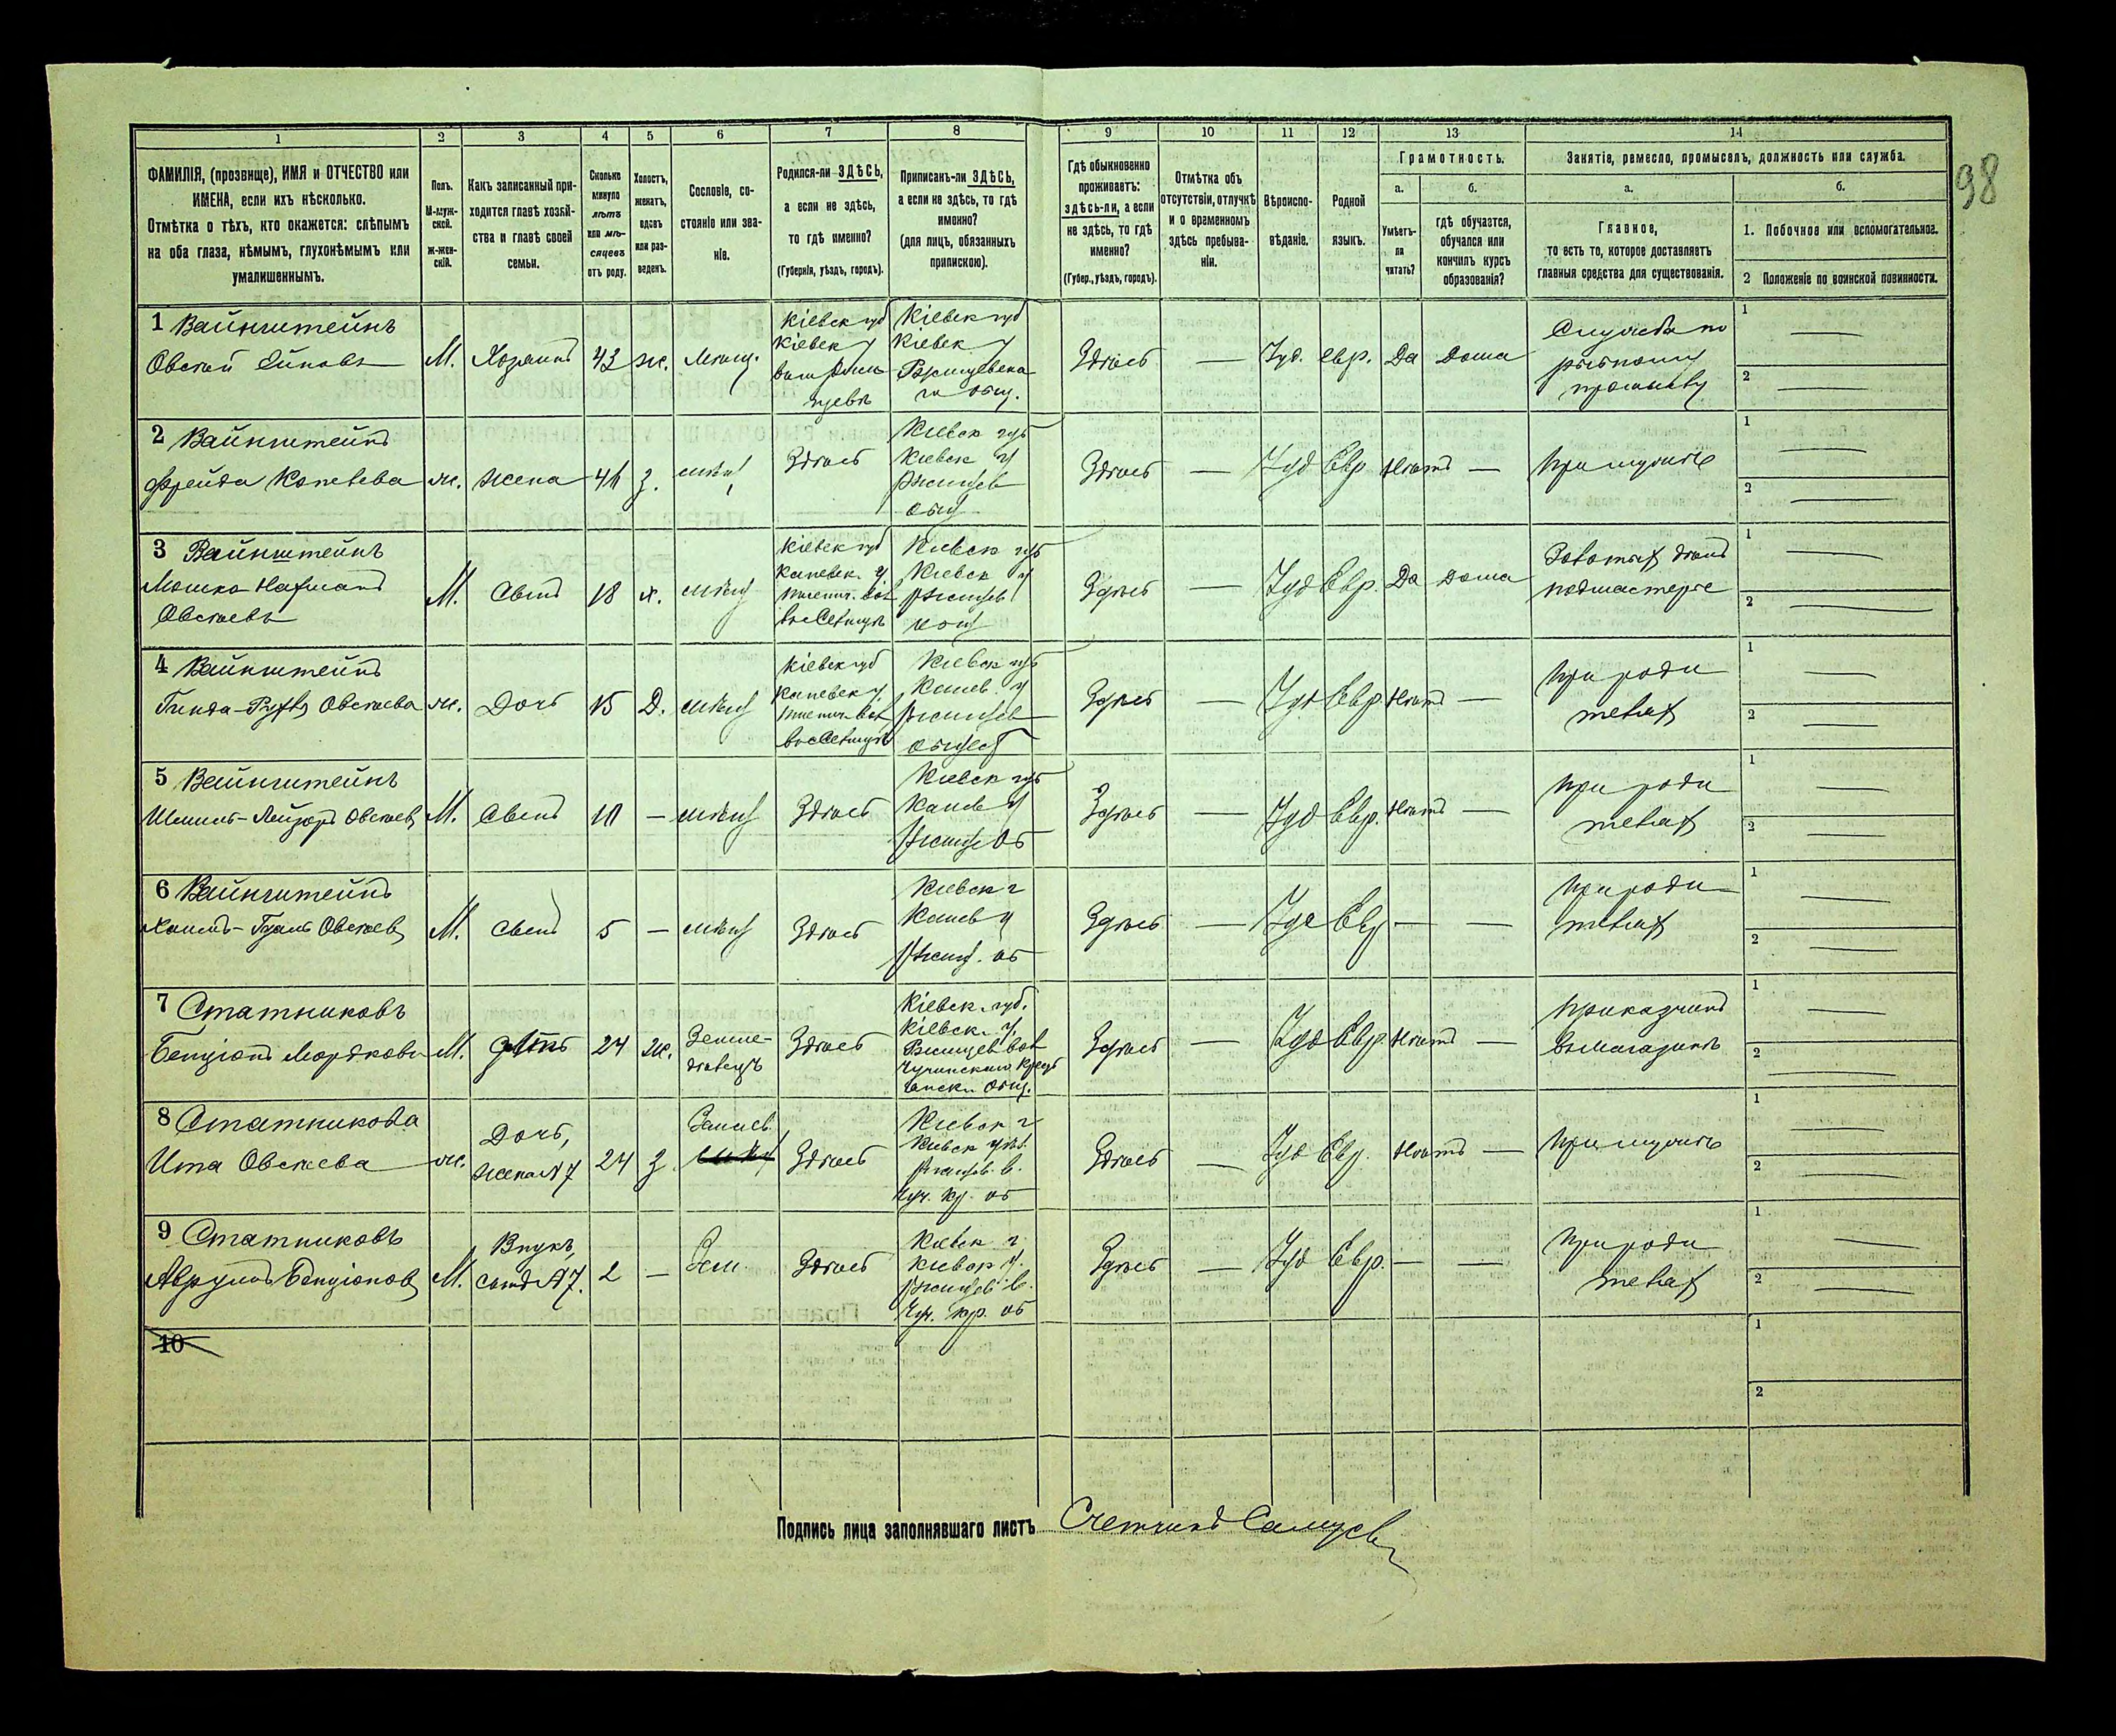 98
1 2 3 4 5 6 7 8 9 10 11 12 13 14
ФАМИЛІЯ, (прозвище), ИМЯ и ОТЧЕСТВО или
ИМЕНА, если ихъ нѣсколько.
Отмѣтка о тѣхъ, кто окажется: слѣпымъ
на оба глаза, нѣмымъ, глухонѣмымъ или
умалишеннымъ.
Полъ.
М-муж-
ской.
ж-жен-
скій.
Какъ записанный при-
ходится главѣ хозяй-
ства и главѣ своей
семьи.
Сколько
минуло
лѣтъ
или мѣ-
сяцевъ
отъ роду.
Холостъ,
женатъ,
вдовъ
или раз-
веденъ.
Сословіе, со-
стояніе или зва-
ніе.
Родился-ли ЗДѢСЬ,
а если не здѣсь,
то гдѣ именно?
(Губернія, уѣздъ, городъ).
Приписанъ-ли ЗДѢСЬ,
а если не здѣсь, то гдѣ
именно?
(для лицъ, обязанныхъ
припискою).
Гдѣ обыкновенно
проживаетъ:
здѣсь-ли, а если
не здѣсь, то гдѣ
именно?
(Губер., уѣздъ, городъ).
Отмѣтка объ
отсутствіи, отлучкѣ
и о временномъ
здѣсь пребыва-
ніи.
Вѣроиспо-
вѣданіе.
Родной
языкъ.
Грамотность.
а.
Умѣетъ-
ли
читать?
б.
гдѣ обучается,
обучался или
кончилъ курсъ
образованія?
Занятіе, ремесло, промыселъ, должность или служба.
а.
Главное,
то есть то, которое доставляетъ
главныя средства для существованія.
б.
1. Побочное или вспомогательное.
2 Положеніе по воинской повинности.
1 Вайнштейнъ
М. Хозяинъ 43 ж. мѣщ.
Кіевск губ
Кіевск у
Кіевск губ
Кіевск у
Здѣсь — Іуд. евр. Да Дома
Служба по
рыбному
промыслу
1 —
2 —
2 Вайнштейнъ
Фрейда ж. жена 41 з. мѣщ
Здѣсь
Кіевск губ
Кіевск у
Ржищев
общ
Здѣсь — Іуд Евр Нѣтъ — При мужѣ
1 —
2 —
3 Вайнштейнъ
Мошко
Овсѣевъ
М. Сынъ 18 х. мѣщ
Кіевск губ
Каневск. у.
Кіевск губ
Кіевск у
Ржищев
Здѣсь — Іуд Евр. Да Дома
подмастерье
1 —
2 —
4 Вайнштейнъ
Овсѣева ж. Дочь 15 Д. мѣщ
Кіевск губ
Каневск у
Кіевск губ
Канев. у
Ржищев
общест
Здѣсь — Іуд Евр Нѣтъ — При роди
теляхъ
1 —
2 —
5 Вайнштейнъ
Овсѣев М. Сынъ 10 — мѣщ Здѣсь
Кіевск губ
Канев у
Ржищ об
Здѣсь — Іуд Евр. Нѣтъ — При роди
теляхъ
1 —
2 —
6 Вайнштейнъ
Овсѣев М. Сынъ 5 — мѣщ Здѣсь
Кіевск г
Канев у
Ржищ. об
Здѣсь — Іуд Евр — — При роди
теляхъ
1 —
2 —
7 Статниковъ
Бенціонъ Мордков М. зять 24 ж.
Земле-
дѣлецъ
Здѣсь
Кіевск. губ.
Кіевск. у.
Ржищев вол
Здѣсь — Іуд Евр Нѣтъ —
Приказчикъ
въ магазинѣ
1 —
2 —
8 Статникова
Ита Овсѣева ж.
Дочь,
жена №7
24 з Здѣсь
Кіевск г
Кіевск у
Ржищев. в.
Чуч. кр. об
Здѣсь — Іуд Евр. Нѣтъ — При мужѣ
1 —
2 —
9 Статниковъ
Аврумъ Бенціонов М.
Внукъ,
сынъ №7.
2 — Зем. Здѣсь
Кіевск г
Кіевск у.
Ржищев в.
Чуч. кр. об
Здѣсь — Іуд Евр. — — При роди
теляхъ
1 —
2 —
10
1
2
Подпись лица заполнявшаго листъ Счетчикъ